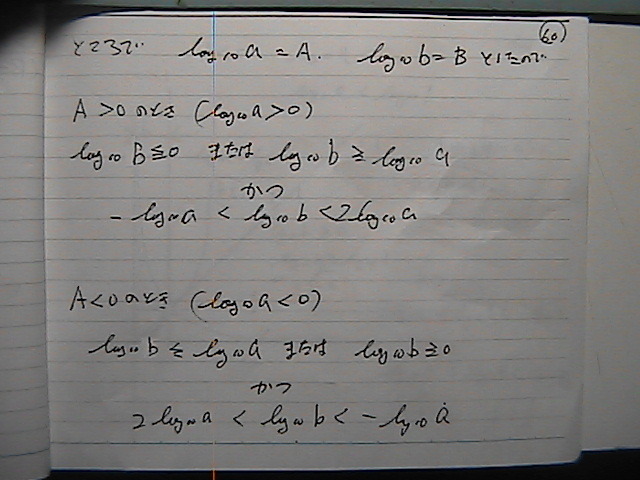 60
ところで log₁₀a = A. log₁₀b = B としたので
A > 0 のとき (log₁₀a > 0)
log₁₀B ≦ 0 または log₁₀b ≧ log₁₀a
かつ
- log₁₀a < log₁₀b < 2log₁₀a
A < 0 のとき (log₁₀a < 0)
log₁₀b ≦ log₁₀a または log₁₀b ≧ 0
かつ
2log₁₀a < log₁₀b < - log₁₀a